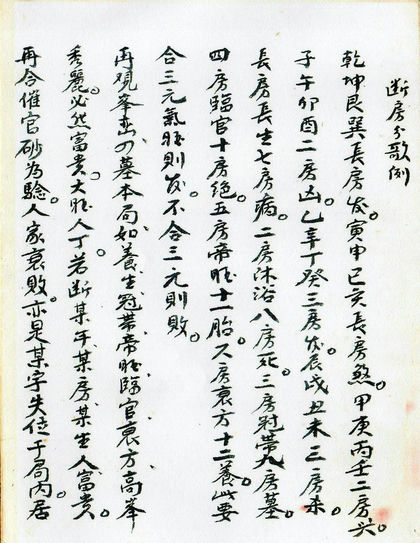 断房分歌例
乾坤艮巽長房发。寅申巳亥長房煞。甲庚丙壬二房兴。
子午卯酉二房凶。乙辛丁癸三房发。辰戌丑未三房杀。
長房長生七房病。二房沐浴八房死。三房冠帶九房墓。
四房臨官十房绝。五房帝旺十一胎。六房衰方十二養。此要
合三元氣旺則发。不合三元則败。
再观峯峦四墓本局如養、生、冠、帶、帝旺、臨官、衰方高峯
秀麗。必然富貴。大旺人丁。若断某年某房某生人富貴。
再合催官砂為驗。人家衰败。亦是某字失位于局内居